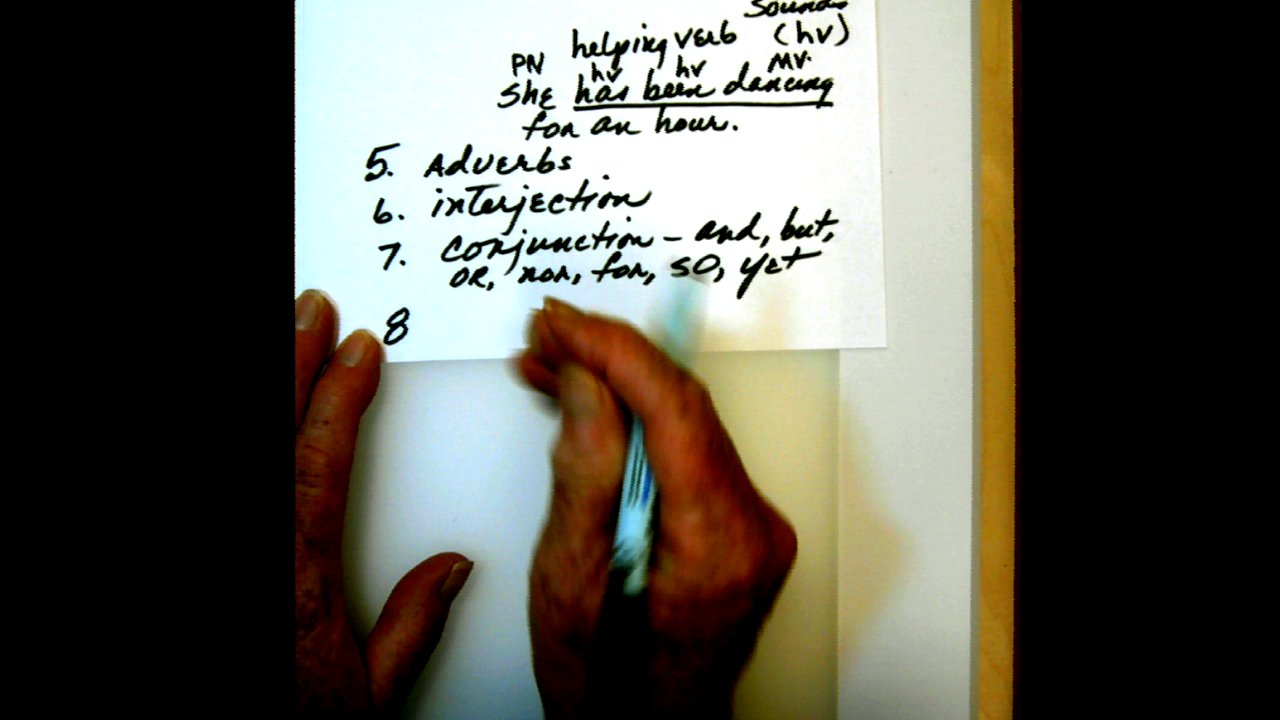 Sounds
helping verb (hv)
PN hv hv MV.
She has been dancing
for an hour.
5. Adverbs
6. interjection
7. conjunction - and, but,
or, nor, for, so, yet
8